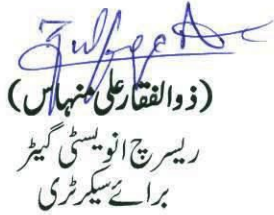 (ذوالفقار علی منہاس)
ریسرچ انویسٹی گیٹر
برائے سیکرٹری